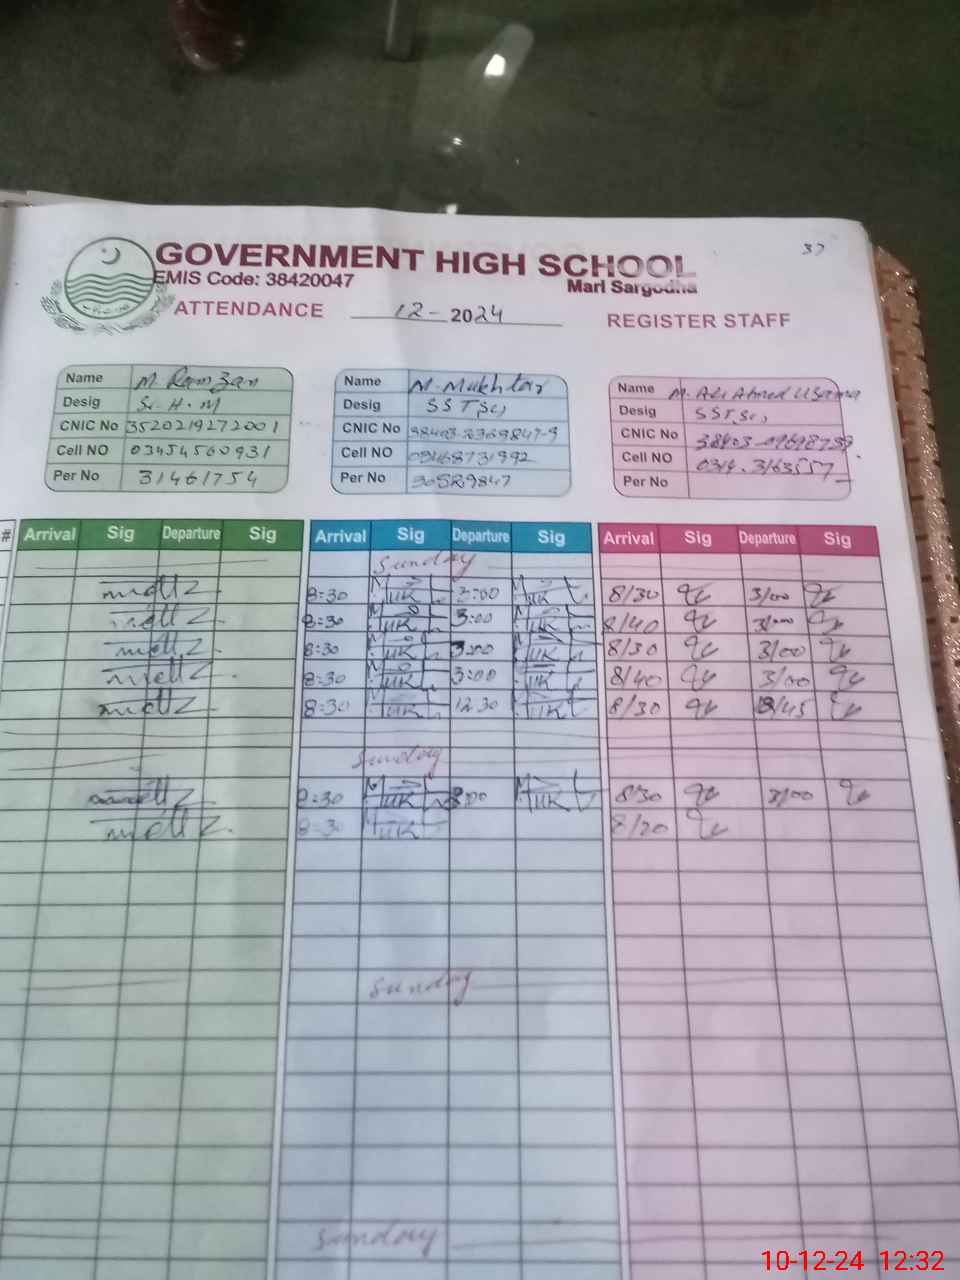 37
GOVERNMENT HIGH SCHOOL
EMIS Code: 38420047
Mari Sargodha
ATTENDANCE 12- 2024 REGISTER STAFF
Name M. Ramzan
Desig Sr. H. M
CNIC No 3520219272001
Cell NO 03454560931
Per No 31461754
Name M. Mukhtar
Desig SST(Sc)
CNIC No
Cell NO 03468731992
Per No 30529847
Name M. Ali Ahmed Usama
Desig SST, Sc,
CNIC No
Cell NO 0314. 3163557
Per No
# Arrival Sig Departure Sig Arrival Sig Departure Sig Arrival Sig Departure Sig
Sunday
8:30 3:00 8/30 3/00
8:30 3:00 8/40 3/00
8:30 3:00 8/30 3/00
8:30 3:00 8/40 3/00
8:30 12:30 8/30
Sunday
8:30 3:00 8/30 3/00
8:30 8/20
Sunday
Sunday
10-12-24 12:32